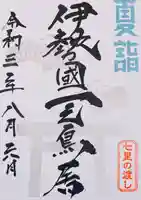 夏詣
伊勢國一之鳥居
令和三年八月六日
七里の渡し